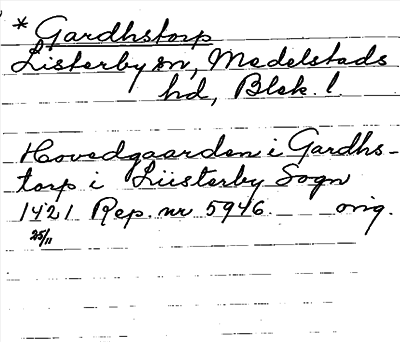 * Gardhstorp
Listerby sn, Medelstads
hd, Blek. l.
Hovedgaarden i Gardhs-
torp i Liisterby Sogn
1421 Rep. nr 5946. orig.
25/11